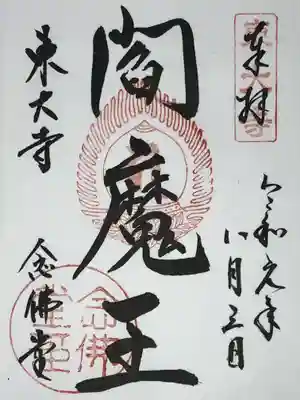 奉拝
令和元年
八月三日
閻魔王
東大寺
念佛堂